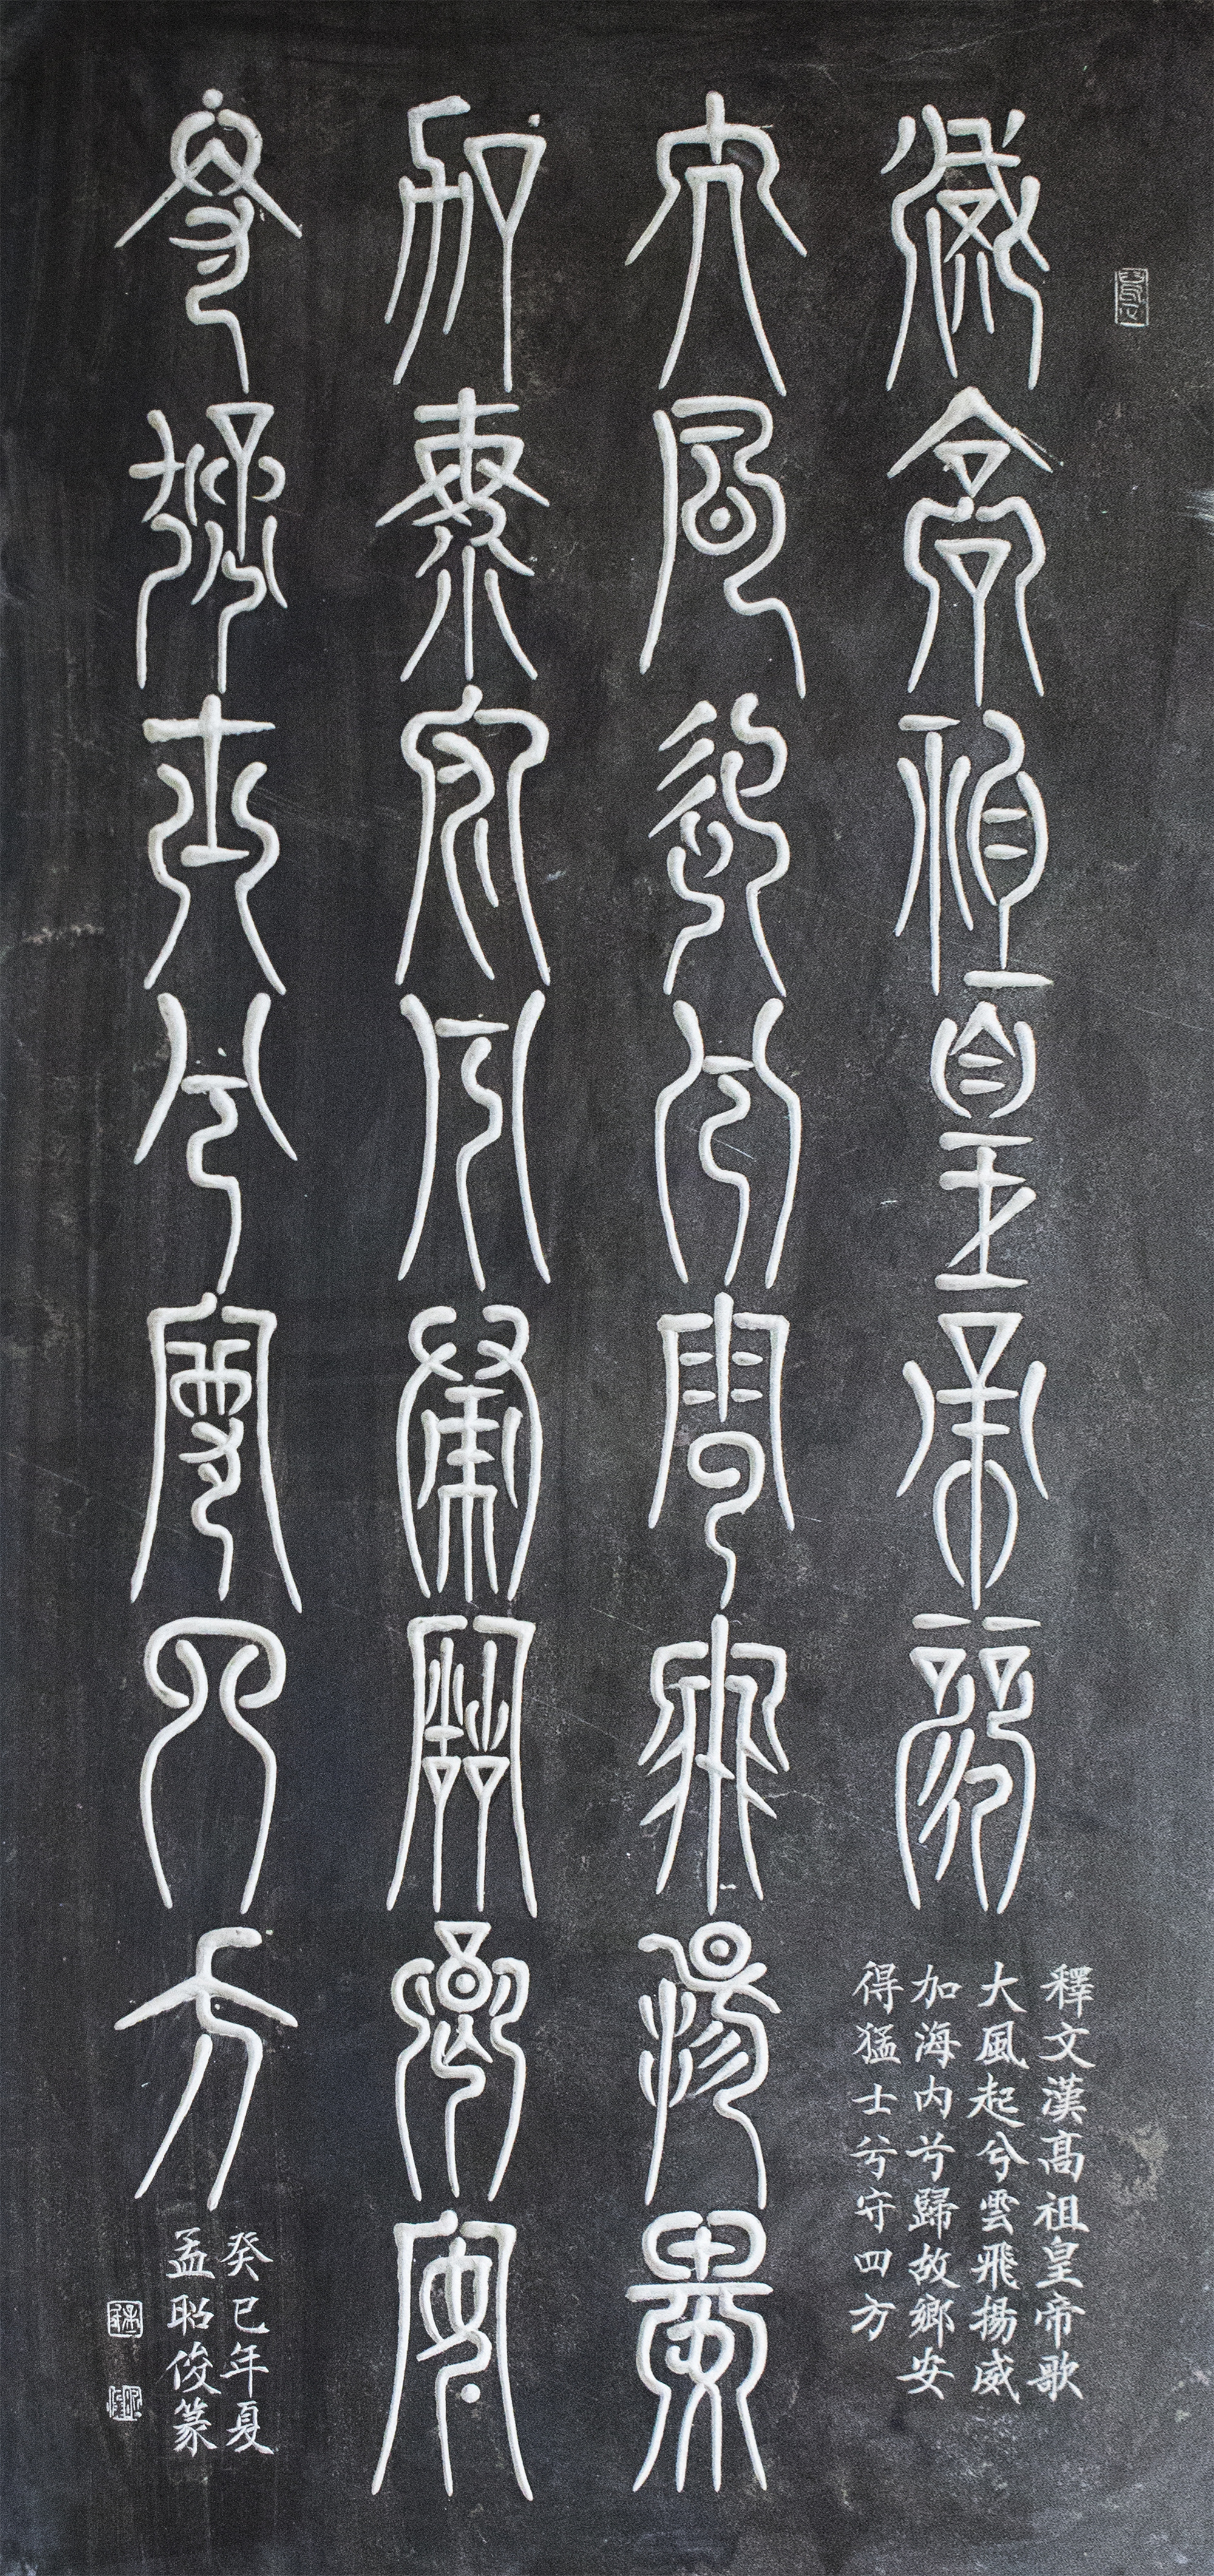 漢高祖皇帝歌
大風起兮雲飛揚威
加海内兮歸故鄉安
得猛士兮守四方
釋文漢高祖皇帝歌
大風起兮雲飛揚威
加海内兮歸故鄉安
得猛士兮守四方
癸巳年夏
孟昭俊篆